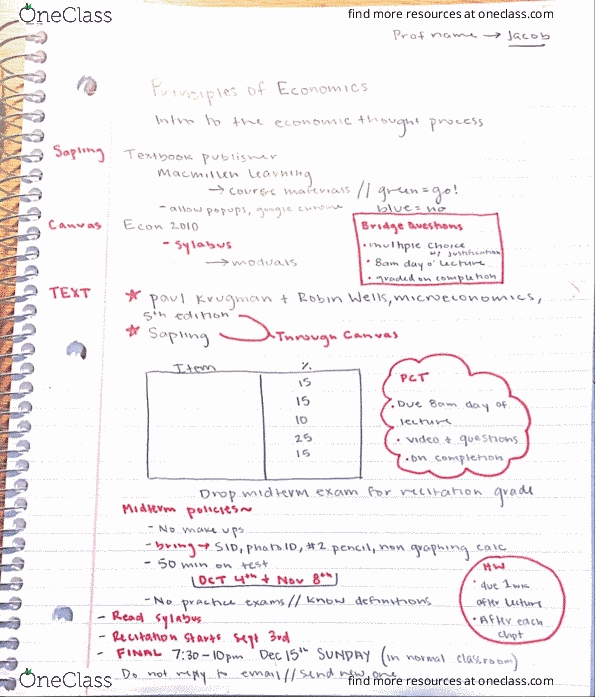 OneClass
find more resources at oneclass.com
Prof name → Jacob
Principles of Economics
Intro to the economic thought process
Sapling Textbook publisher
Macmillen Learning
→ course materials // green = go!
- allow popups, google chrome blue = no
Canvas Econ 2010
- Sylabus
→ moduals
Bridge Questions
• multiple choice
w/ justification
• 8am day o' lecture
• graded on completion
TEXT ★ paul krugman + Robin Wells, microeconomics,
5th edition
★ Sapling Through Canvas
Item %
15
15
10
25
15
PCT
• Due 8am day of
lecture
• video + questions
• on completion
Drop midterm exam for recitation grade
Midterm policies~
- No make ups
- bring → SID, photo ID, #2 pencil, non graphing calc
- 50 min on test
[OCT 4th + Nov 8th]
- No practice exams // know definitions
HW
• due 1 wk
after lecture
• After each
chpt
- Read sylabus
- Recitation starts Sept 3rd
- FINAL 7:30-10pm Dec 15th SUNDAY (in normal classroom)
Do not reply to email // send new one
OneClass
find more resources at oneclass.com